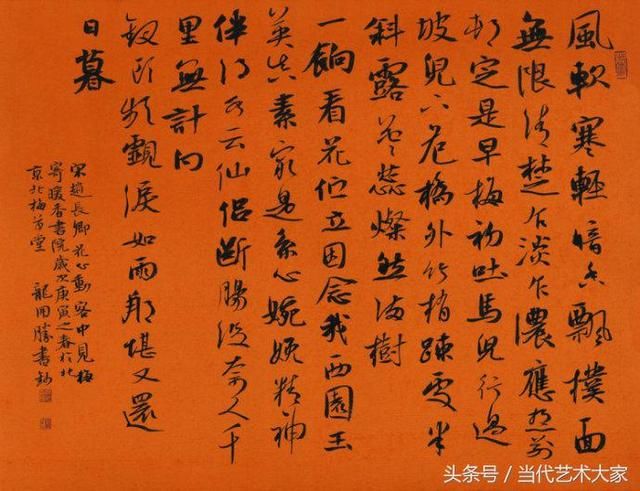 風軟寒輕暗香飄撲面
無限清楚乍淡乍濃應想前
村定是早梅初吐馬兒行過
坡兒下危橋外竹梢疎處半
斜露花蕊燦然滿樹
一餉看花伫立因念我西園玉
英真素最是系心婉娩精神
伴得水云仙侶斷腸没奈人千
里無計向
釵頭頻覷淚如雨那堪又還
日暮
宋趙長卿花心動客中見梅
寄暖香書院歲次庚寅之春於北
京北梅堂 龍開勝書
头条号 / 当代艺术大家